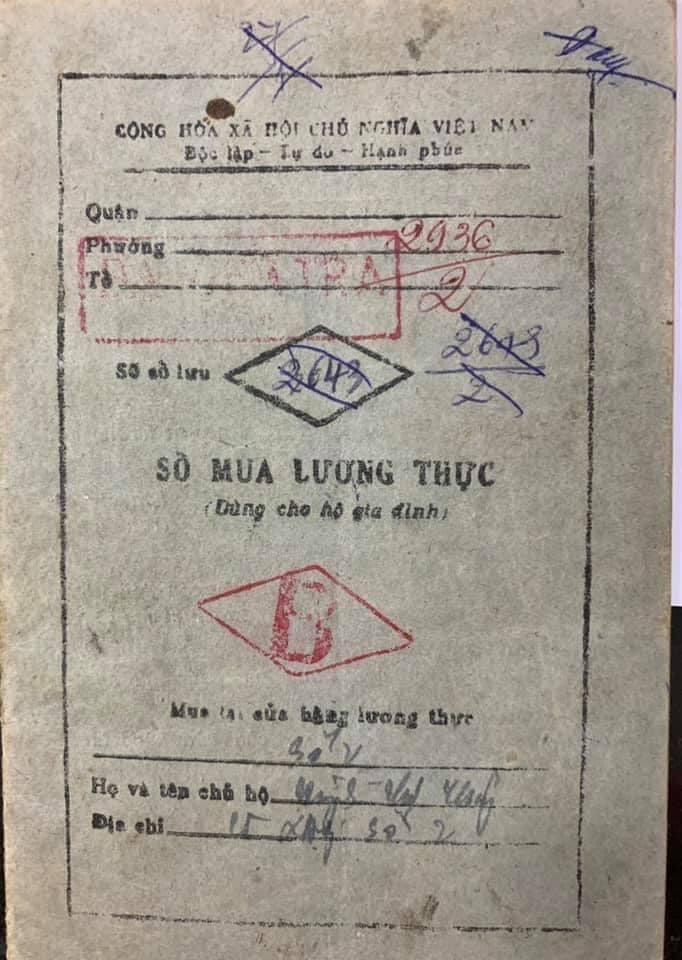 CỘNG HÒA XÃ HỘI CHỦ NGHĨA VIỆT NAM
Độc lập - Tự do - Hạnh phúc
Quận
Phường
2936
Tổ
2
Số sổ lưu
2643
2643
2
SỔ MUA LƯƠNG THỰC
(Dùng cho hộ gia đình)
B
Mua tại cửa hàng lương thực
Số 2
Họ và tên chủ hộ
Địa chỉ 15 số 2